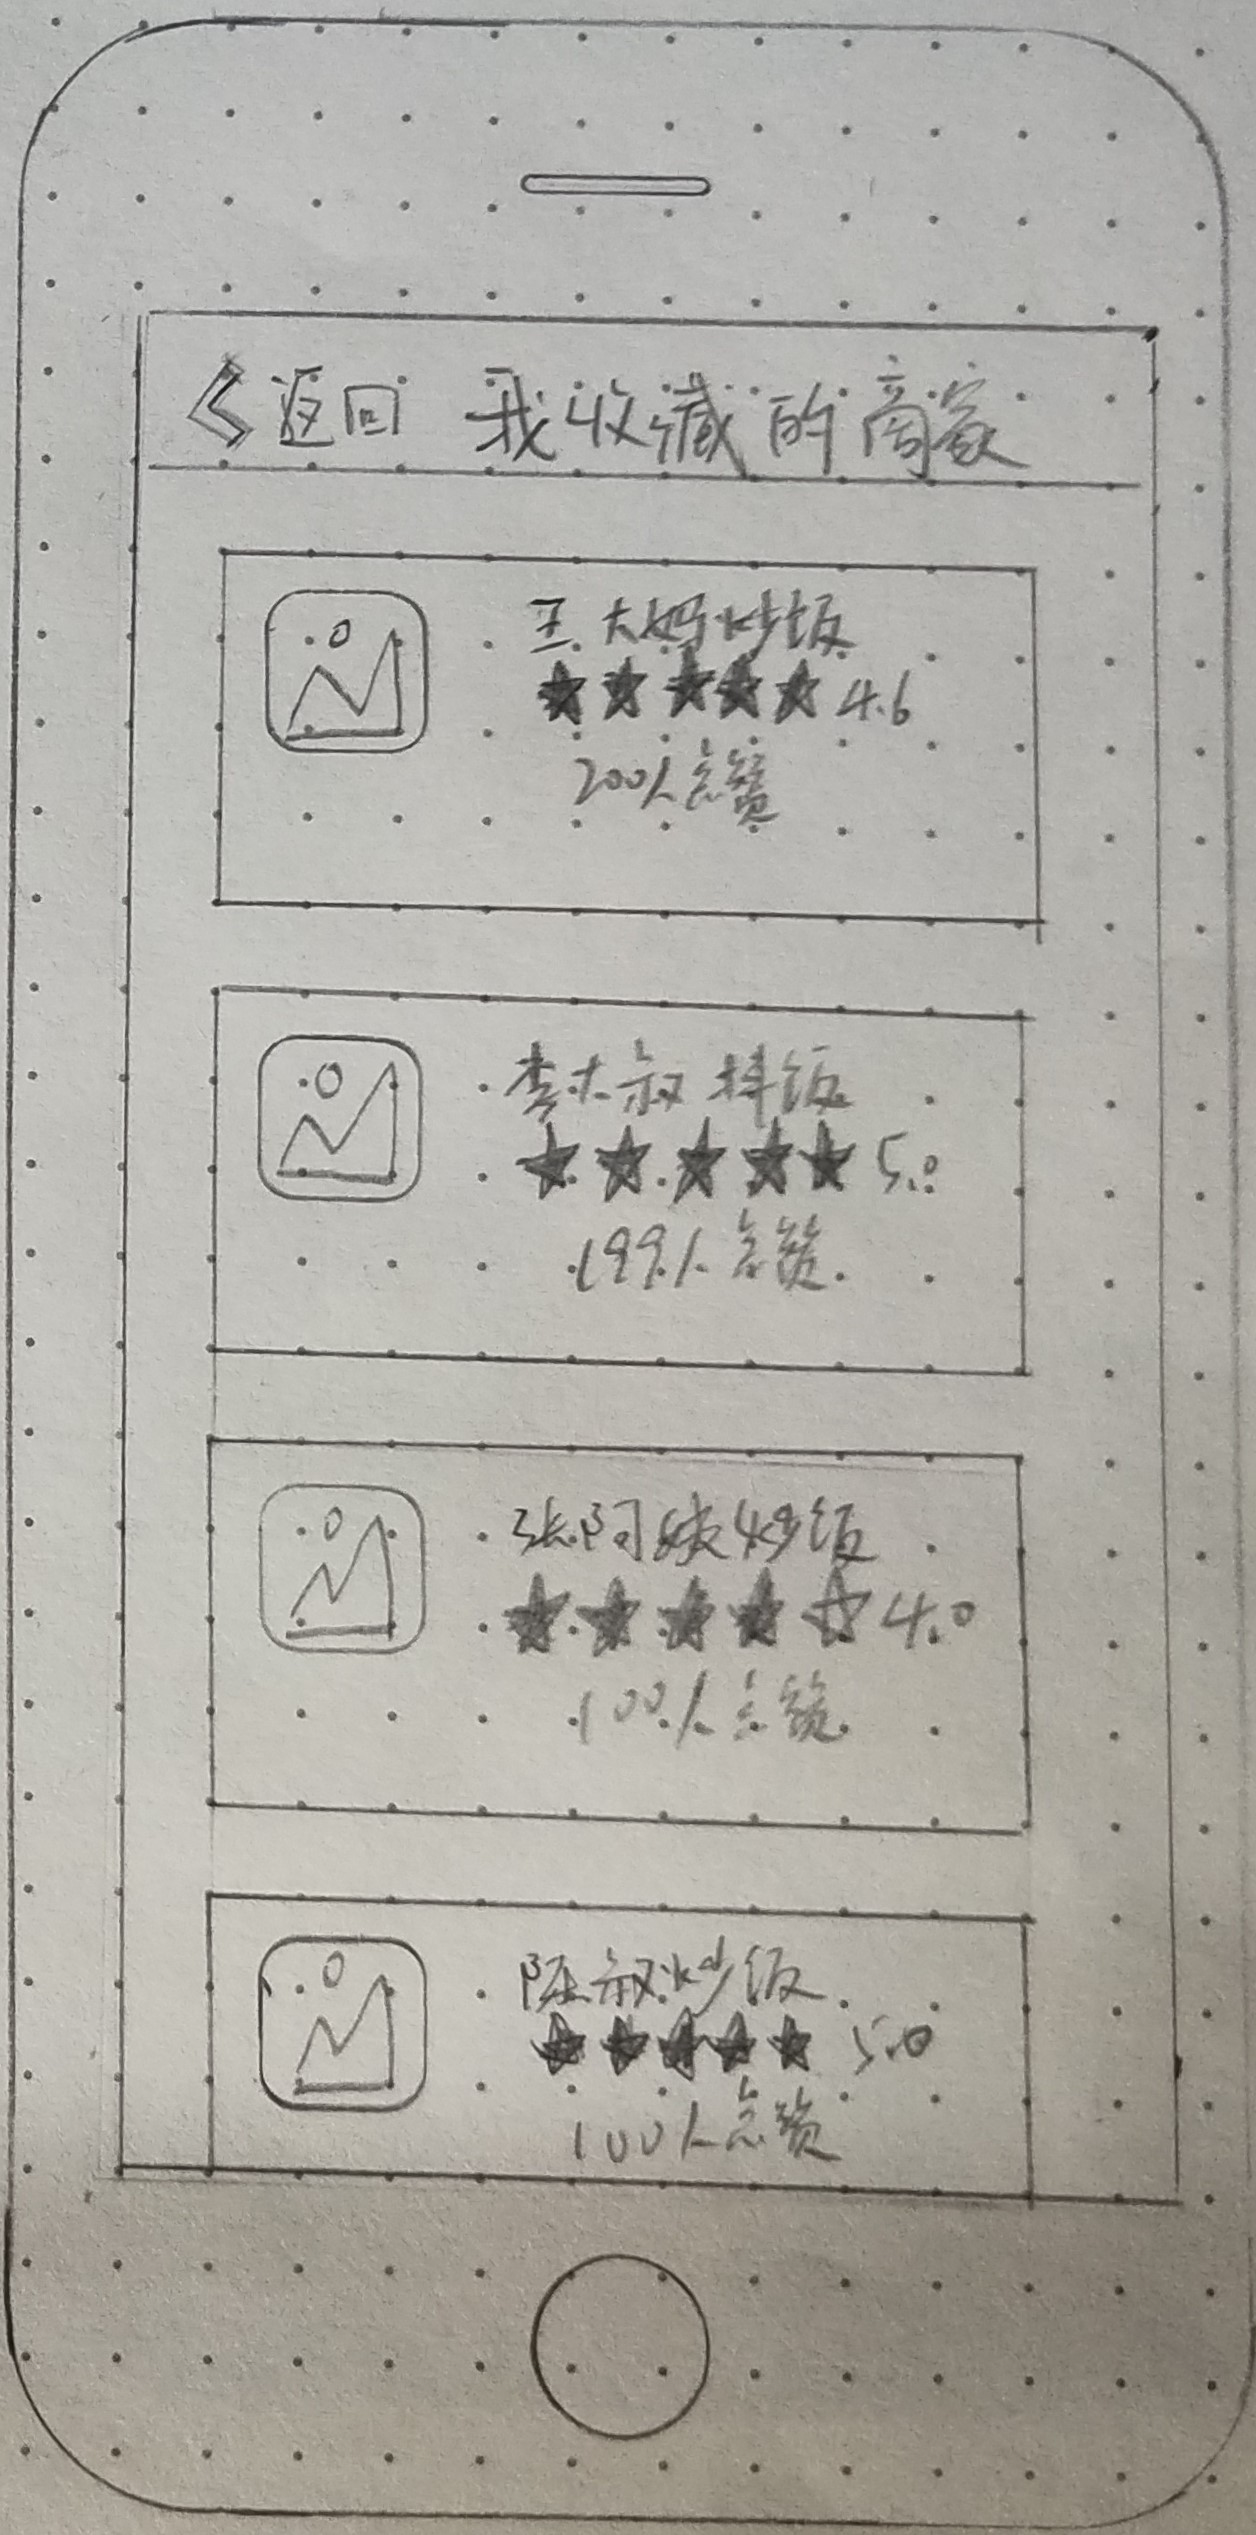 返回 我收藏的商家
王大妈炒饭
★★★★★ 4.6
200人点赞
李大叔拌饭
★★★★★ 5.0
199人点赞
张阿姨炒饭
★★★★☆ 4.0
100人点赞
陈叔炒饭
★★★★★ 5.0
100人点赞